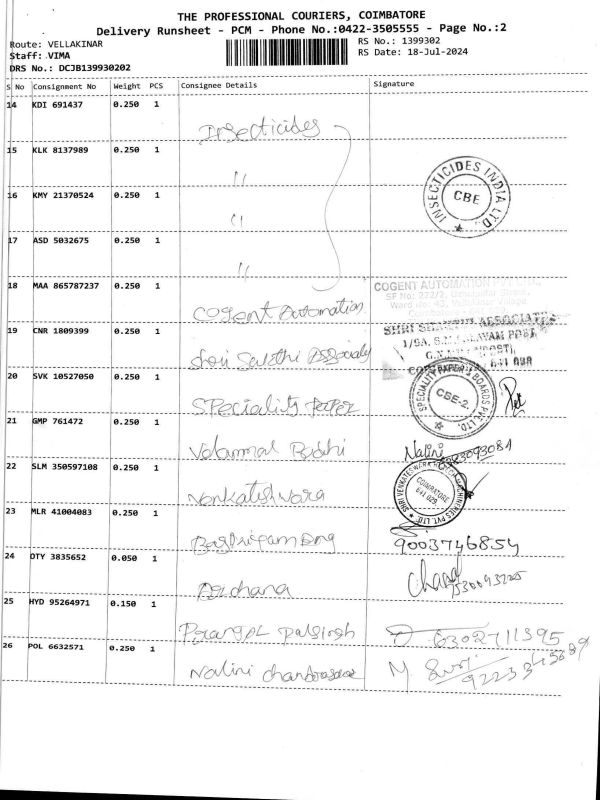 THE PROFESSIONAL COURIERS, COIMBATORE
Delivery Runsheet - PCM - Phone No.:0422-3505555 - Page No.:2
Route: VELLAKINAR RS No.: 1399302
Staff: VIMA RS Date: 18-Jul-2024
DRS No.: DCJB139930202
S No Consignment No Weight PCS Consignee Details Signature
14 KDI 691437 0.250 1 Insecticides
15 KLK 8137989 0.250 1 "
16 KMY 21370524 0.250 1 "
17 ASD 5032675 0.250 1 "
INSECTICIDES INDIA LTD.
CBE
18 MAA 865787237 0.250 1 Cogent Automation
COGENT AUTOMATION PVT LTD.,
19 CNR 1809399 0.250 1
SHRI
20 SVK 10527050 0.250 1 Speciality Paper
SPECIALITY PAPER BOARDS PVT. LTD.
CBE-2
21 GMP 761472 0.250 1
Nalini
22 SLM 350597108 0.250 1 Venkateshwara
SHRI VENKATESHWARA MACHINERIES PVT. LTD
COIMBATORE
641 029
23 MLR 41004083 0.250 1
9003746854
24 OTY 3835652 0.050 1 Archana
25 HYD 95264971 0.150 1
6302711395
26 POL 6632571 0.250 1 Nalini